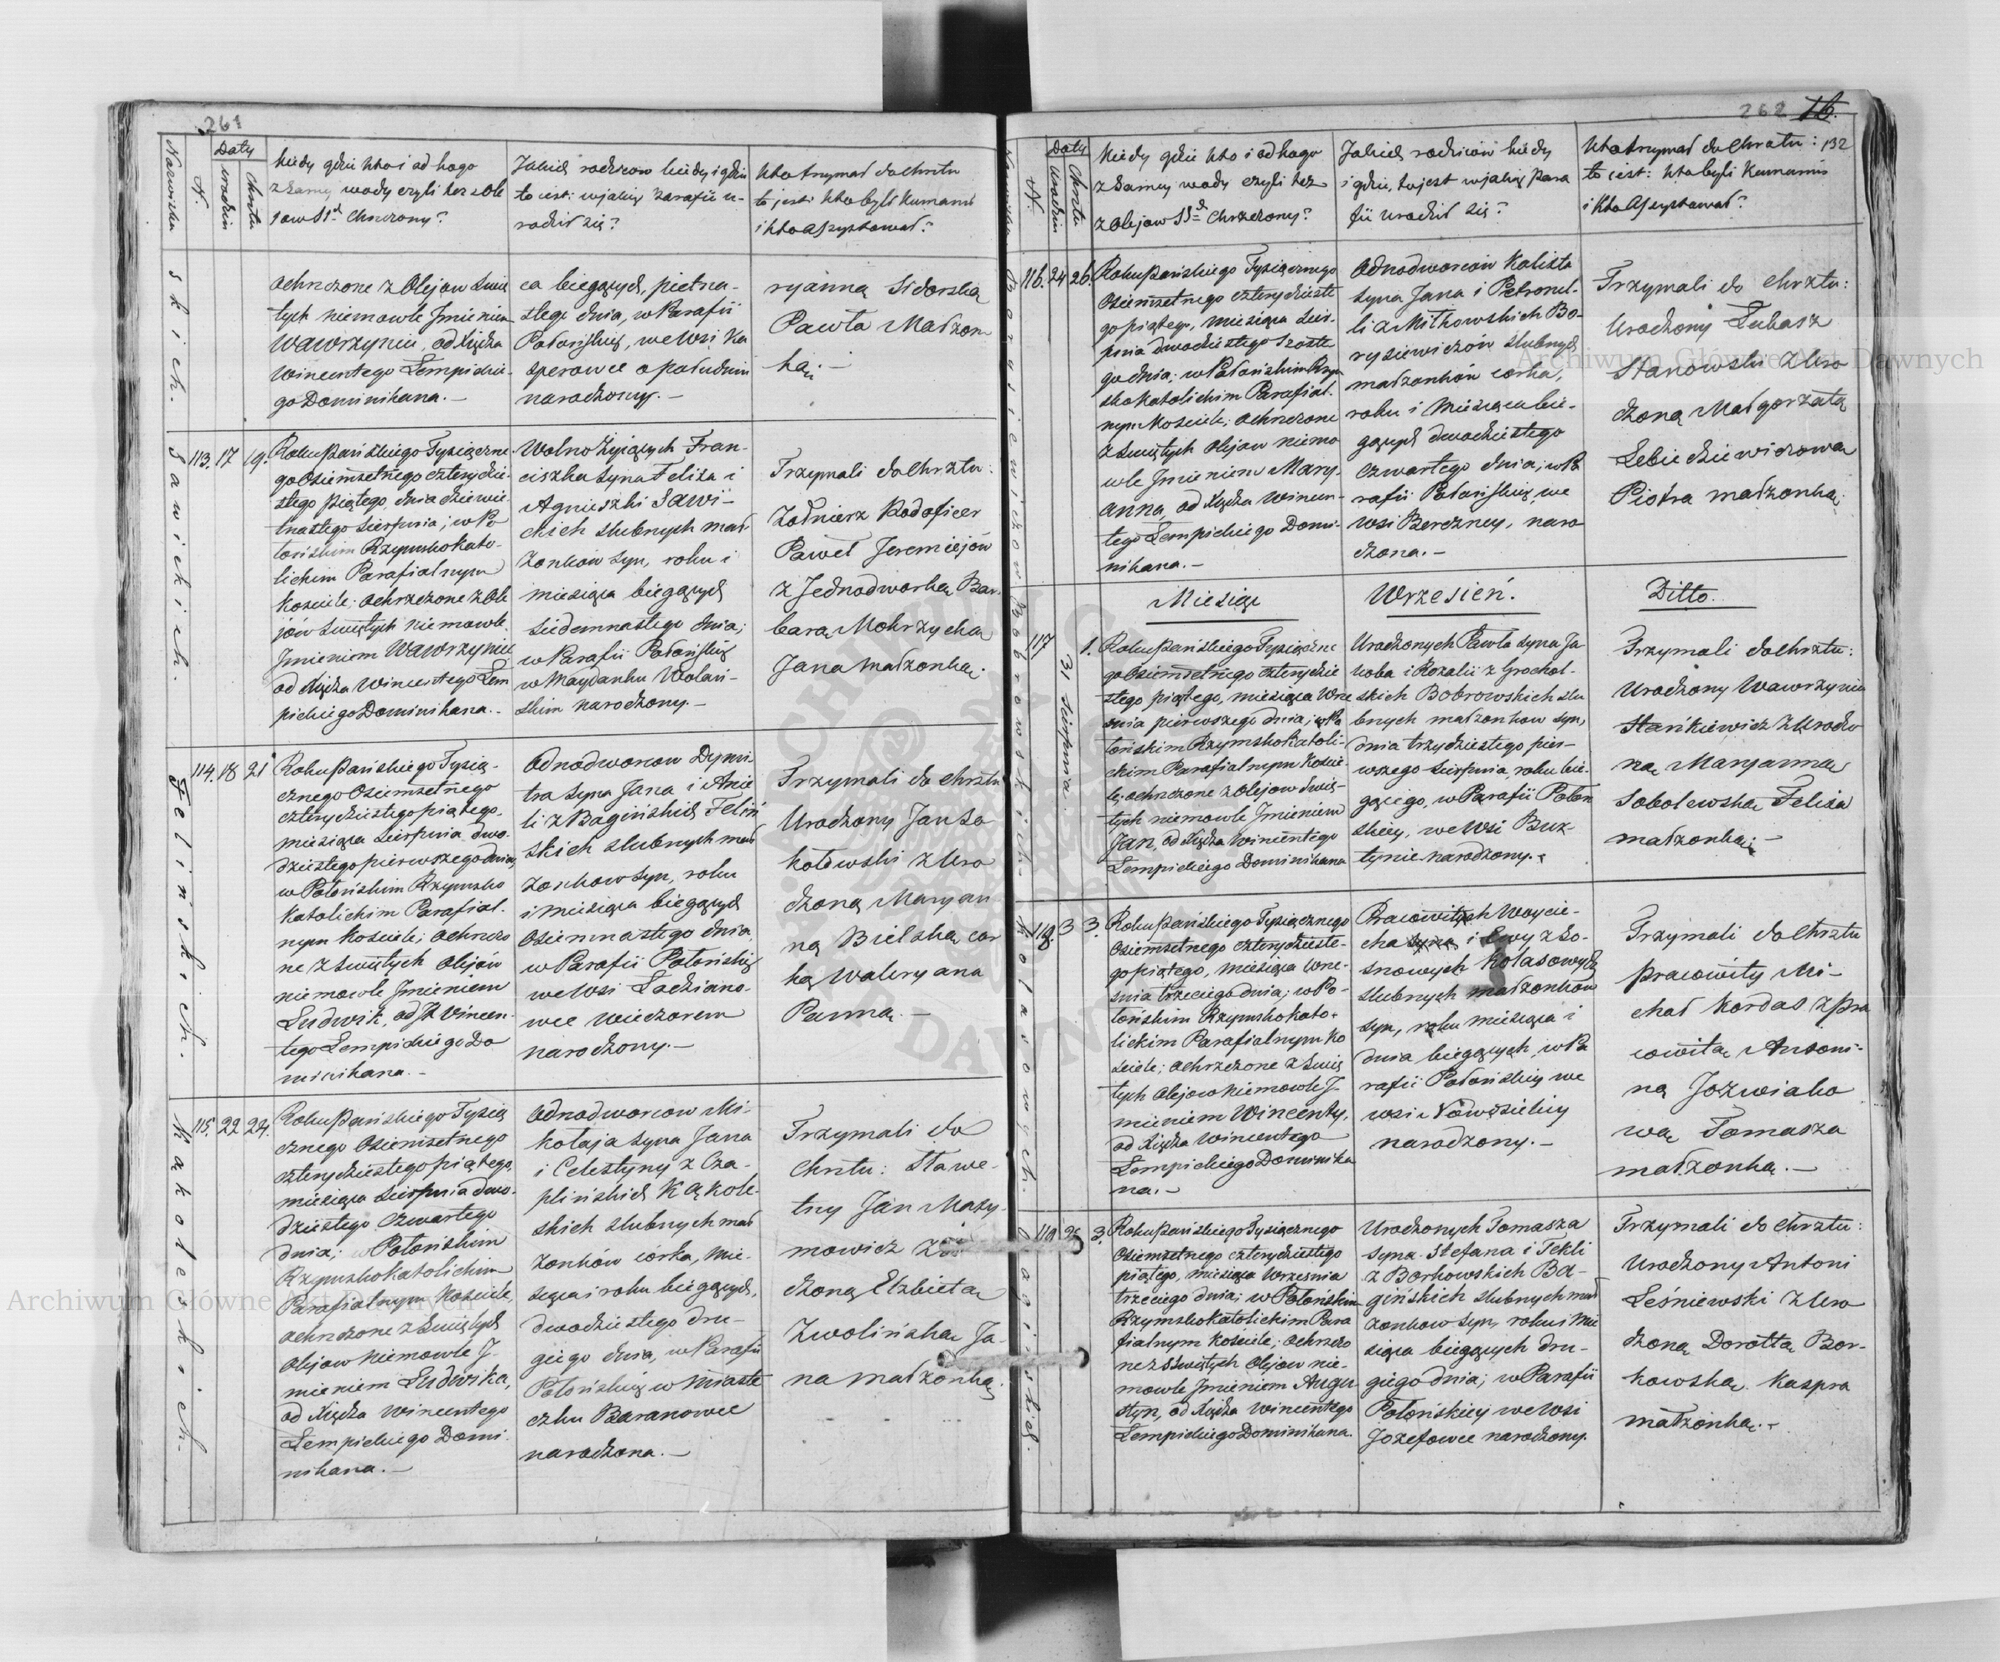 261
Nazwiska
N.
Daty
urodzin
Chrztu
kiedy gdzie kto i od kogo
z samej wody czyli też z Ole
jow SSd Chrzczony?
Jakich rodzicow kiedy i gdzie
to iest: w jakiej Parafii u-
rodził się?
Kto trzymał do chrztu
to jest: kto byli kumami
i kto assystował?
skich.
ochrzczone z Olejow Swię
tych niemowle Jmieniem
Wawrzyniec, od Księdza
Wincentego Lempickie-
go Dominikana.-
ca bieguących, pietna-
stego dnia, w Parafii
Połońskiej, we wsi Ka
sperowce o południu
narodzony.-
ryanną Sidorską
Pawła Małżon
ką.-
Sawickich.
113. 17 19.
Roku Pańskiego Tysiączne
go Osiemsetnego czterydzie-
stego piątego, dnia dziewie
tnastego Sierpnia; w Po
łońskim Rzymskokato-
lickim Parafialnym
Kosciele; ochrzczone z Ole
jów Swiętych niemowle
Jmieniem Wawrzyniec
od Księdza Wincentego Lem
pickiego Dominikana.-
Wolno Żyiących Fran-
ciszka syna Felixa i
Agnieszki Sawi-
ckich slubnych mał
żonkow syn, roku i
miesiąca bieguących
siedemnastego dnia;
w Parafii Połońskiej
w Maydanku Wolań-
skim narodzony.-
Trzymali do chrztu:
Żołnierz Podoficer
Paweł Jeremiejów
z Jednodworką Bar-
barą Mokrzycką
Jana małżonką.
Felinskich.
114. 18 21
Roku Pańskiego Tysią-
cznego Osiemsetnego
czterydziestego piątego,
miesiąca Sierpnia dwu-
dziestego pierwszego dnia;
w Połońskim Rzymsko
katolickim Parafial-
nym Kosciele; ochrzczo
ne z Swiętych Olejów
niemowle Jmieniem
Ludwik, od X Wincen-
tego Lempickiego Do
minikana.-
Odnodworcow Dymi-
tra syna Jana i Anie
li z Bagińskich Feliń
skich slubnych mał
żonkow syn, roku
i miesiąca bieguących
Osiemnastego dnia,
w Parafii Połońskiej
we wsi Ladziano-
wce wieczorem
narodzony.-
Trzymali do chrztu
Urodzony Jan So-
kołowski z Uro
dzoną Maryan
ną Bielską cor
ką Waleryana
Panną.-
Kąkoleskich.
115. 22 24.
Roku Pańskiego Tysią
cznego Osiemsetnego
czterydziestego piątego,
miesiąca Sierpnia dwu-
dziestego Czwartego
dnia; w Połońskim
Rzymskokatolickim
Parafialnym Kosciele,
ochrzczone z Swiętych
Olejow niemowle J-
mieniem Ludwika,
od Księdza Wincentego
Lempickiego Domi-
nikana.-
Odnodworcow Mi-
kołaja syna Jana
i Celestyny z Cza-
plińskich Kąkole-
skich slubnych mał
żonków córka, mie-
siąca i roku bieguących,
dwudziestego dru-
giego dnia, w Parafii
Połońskiej w Miaste
czku Baranowce
narodzona.-
Trzymali do
Chrztu: Sława-
tny Jan Maxy-
mowicz z
dzoną Elżbietą
Zwolińską Ja-
na małżonką.
262
132
N.
Daty
urodzin
Chrztu
kiedy gdzie kto i od kogo
z samey wody czyli też
z Olejow SSd chrzczony?
Jakich rodzicow kiedy
i gdzie, to jest w jakiej Para
fii urodził się?
Kto trzymał do Chrztu:
to iest: kto byli Kumami
i Kto assystował?
Borysiewiczow
116. 24 26.
Roku Pańskiego Tysiącznego
Osiemsetnego czterydzieste
go piątego, miesiąca Sier-
pnia dwudziestego szóste
go dnia; w Połońskim Rzym
skokatolickim Parafial-
nym Kosciele; ochrzczone
z Swiętych Olejow niemo
wle Jmieniem Mary-
anna, od Księdza Wincen-
tego Lempickiego Domi-
nikana.-
Odnodworców Kalixta
syna Jana i Petronel-
li z Mitkowskich Bo-
rysiewiczów slubnych
małżonków córka,
roku i Miesiąca bie-
guących dwudziestego
czwartego dnia; w Pa
rafii Połońskiej we
wsi Berezney, naro
dzona.-
Trzymali do chrztu:
Urodzony Łukasz
Stanowski z Uro
dzoną Małgorzatą
Lebiedziewiczową
Piotra małżonką.
Miesiąc Wrzesień. Ditto.
Bobrowskich.
117
31 Sierpnia
1.
Roku Pańskiego Tysiączne
go Osiemsetnego czterydzie
stego piątego, miesiąca Wrze
snia pierwszego dnia; w Po
łońskim Rzymskokatoli-
ckim Parafialnym Koście
le; ochrzczone z Olejow Swię-
tych niemowle Jmieniem
Jan, od Księdza Wincentego
Lempickiego Dominikana
Urodzonych Pawła syna Ja
kóba i Rozalii z Grochol-
skich Bobrowskich slu
bnych małżonkow syn,
dnia trzydziestego pier-
wszego Sierpnia, roku bie-
guącego, w Parafii Połon
skiey, we wsi Buż-
tynie narodzony.
Trzymali do chrztu:
Urodzony Wawrzyniec
Stańkiewicz z Urodzo
ną Maryanną
Sobolewską Felixa
małżonką.-
Kolasowych.
118. 3 3.
Roku Pańskiego Tysiącznego
Osiemsetnego czterydzieste-
go piątego, miesiąca Wrze-
snia trzeciego dnia; w Po-
łońskim Rzymskokato-
lickim Parafialnym Ko
sciele; ochrzczone z Swię
tych Olejow niemowle J-
mieniem Wincenty,
od Księdza Wincentego
Lempickiego Dominika
na.-
Pracowitych Woycie-
cha syna i Ewy z So-
snowych Kolasowych
slubnych małżonkow
syn, roku miesiąca i
dnia bieguących, w Pa
rafii Połońskiej we
wsi Nowosielicy
narodzony.-
Trzymali do chrztu
pracowity Mi-
chał Kordas z pra
cowitą Antoni-
ną Jozwiako
wą Tomasza
małżonką.-
Bagińskich.
119 2. 3.
Roku Pańskiego Tysiącznego
Osiemsetnego czterydziestego
piątego, miesiąca Września
trzeciego dnia; w Połońskim
Rzymskokatolickim Para
fialnym Kościele; ochrzczo
ne z Swiętych Olejow nie-
mowle Jmieniem Augu
styn, od Księdza Wincentego
Lempickiego Dominikana.
Urodzonych Tomasza
syna Stefana i Tekli
z Borkowskich Ba-
gińskich slubnych mał
żonkow syn, roku i mie
siąca bieguących dru-
giego dnia; w Parafii
Połońskiey we wsi
Jozefowce narodzony.
Trzymali do chrztu:
Urodzony Antoni
Leśniewski z Uro
dzoną Dorottą Bor-
kowską Kaspra
małżonką.-
Archiwum Główne Akt Dawnych
Archiwum Główne Akt Dawnych